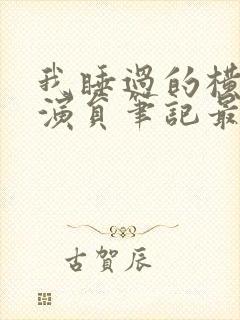 我睡過的橫
演員筆記最
古賀辰